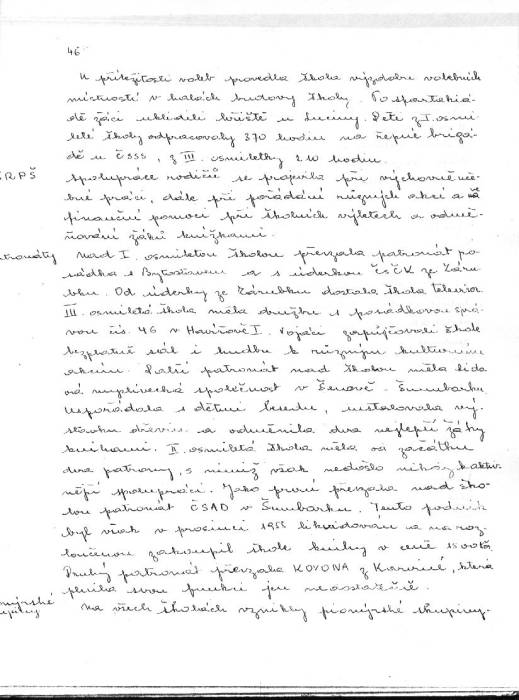 46
U příležitosti voleb provedla škola výzdobu volebních
místností v halách budovy školy. Po spartakiá-
dě žáci uklidili hřiště u Luciny. Děti z I. osmi-
leté školy odpracovaly 370 hodin na řepné brigá-
dě u ČSSS, z III. osmiletky 210 hodin.
SRPŠ Spolupráce rodičů se projevila při výchovně uče-
bné práci, dále při pořádání různých akcí a
finanční pomoci při školních výletech a odmě-
ňování žáků knížkami.
Nad I. osmiletou školou převzala patronát po-
sádka s a s úderkou ČSČK ze Záru-
bku. Od úderky ze Zárubku dostala škola televizor.
III. osmiletá škola měla družbu s pořádkovou sprá-
vou čís. 46 v Havířově I. Vojáci zapůjčovali škole
bezplatně sál i hudbu k různým kulturním
akcím. Další patronát nad školou měla
myslivecká společnost v Šenově - Šumbarku.
Uspořádala s dětmi besedu, nainstalovala vý-
stavku dřevin a odměnila dva nejlepší žáky
knihami. II. osmiletá škola měla od začátku
dva patrony, s nimiž však nedošlo nikdy k aktiv-
nější spolupráci. Jako první převzala nad ško-
lou patronát ČSAD v Šumbarku. Tento podnik
byl však v prosinci 1955 likvidován a na roz-
loučenou zakoupil škole knihy v ceně
Druhý patronát převzala KOVONA z Karviné, která
plnila svou funkci jen nedostatečně.
Na všech školách vznikly pionýrské skupiny.